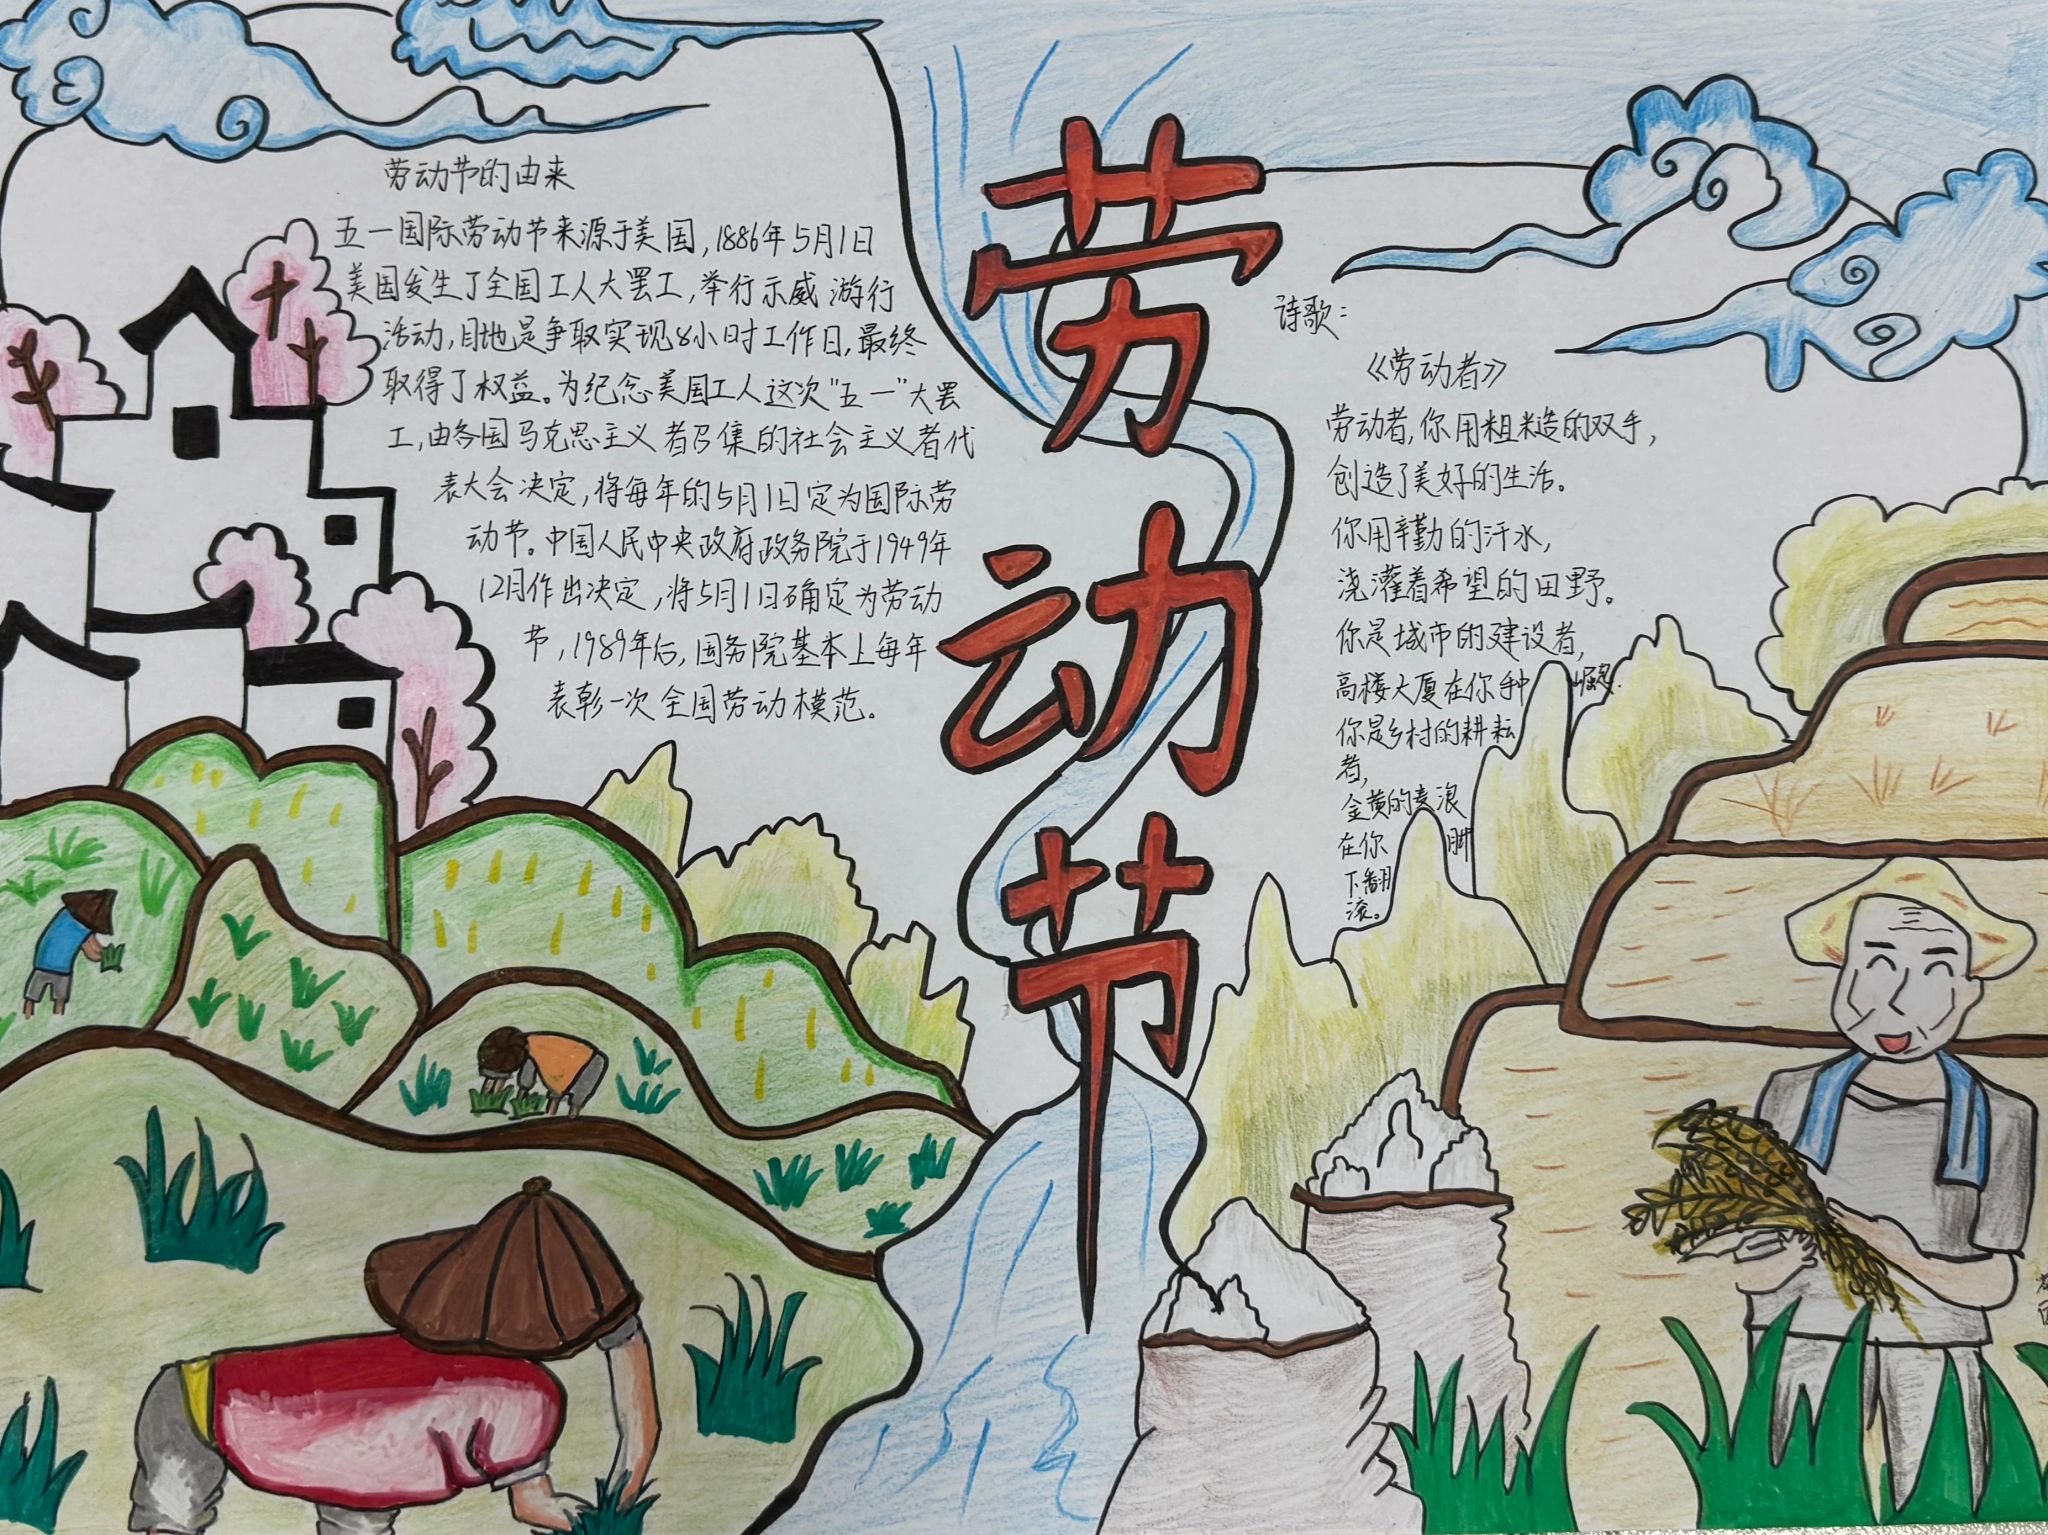 劳动节的由来
五一国际劳动节来源于美国,1886年5月1日
美国发生了全国工人大罢工,举行示威游行
活动,目地是争取实现8小时工作日,最终
取得了权益。为纪念美国工人这次"五一"大罢
工,由各国马克思主义者召集的社会主义者代
表大会决定,将每年的5月1日定为国际劳
动节。中国人民中央政府政务院于1949年
12月作出决定,将5月1日确定为劳动
节,1989年后,国务院基本上每年
表彰一次全国劳动模范。
劳
动
节
诗歌:
《劳动者》
劳动者,你用粗糙的双手,
创造了美好的生活。
你用辛勤的汗水,
浇灌着希望的田野。
你是城市的建设者,
高楼大厦在你手中崛起.
你是乡村的耕耘
者,
金黄的麦浪
在你脚
下翻
滚。